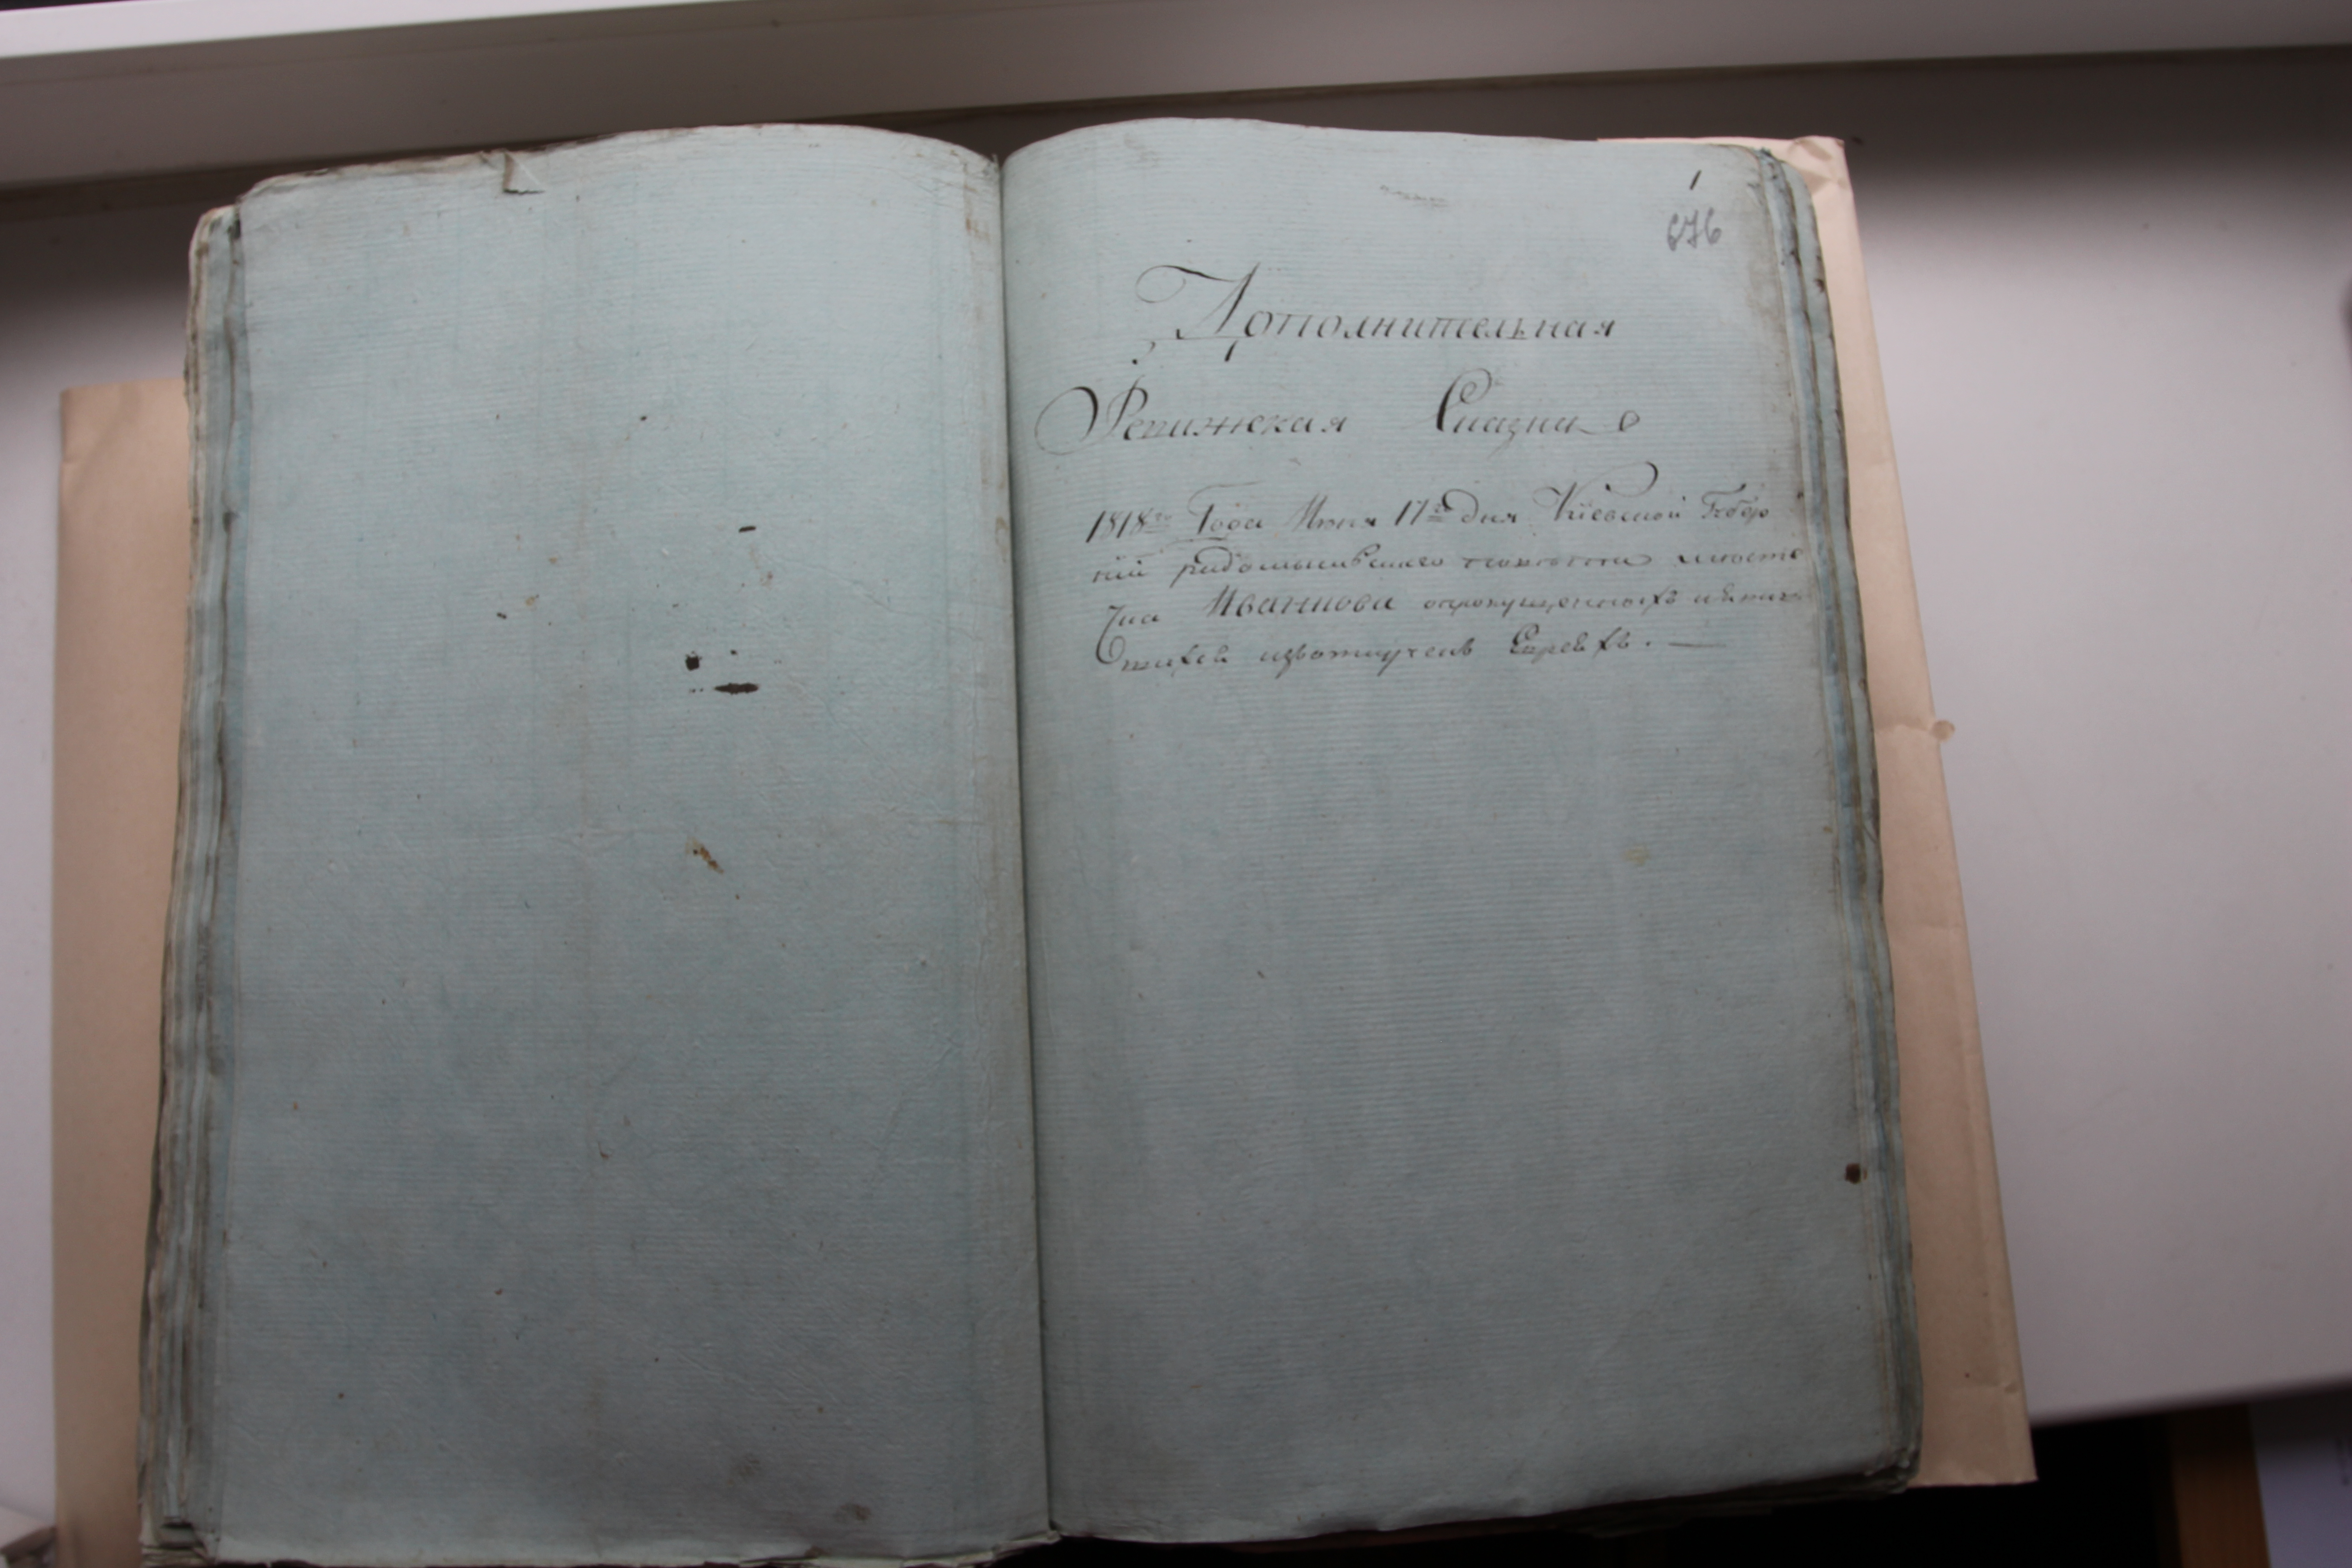 1
676
Дополнительная
Ревижская Сказка о
1818го Года Июня 17го дня Киевской Губер
нии радомысльского повета местеч
ка Иванкова опропущенныхъ
Евреевъ. —